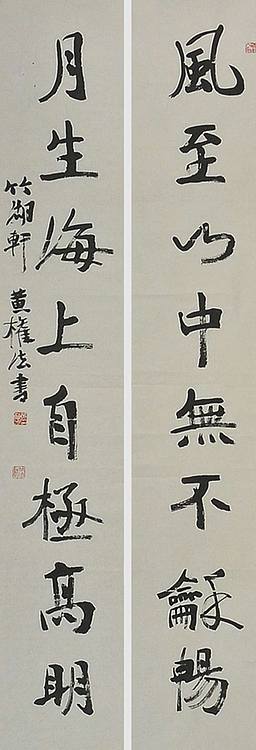 風至山中無不龢暢
月生海上自極高明
竹湖軒 黃權法書